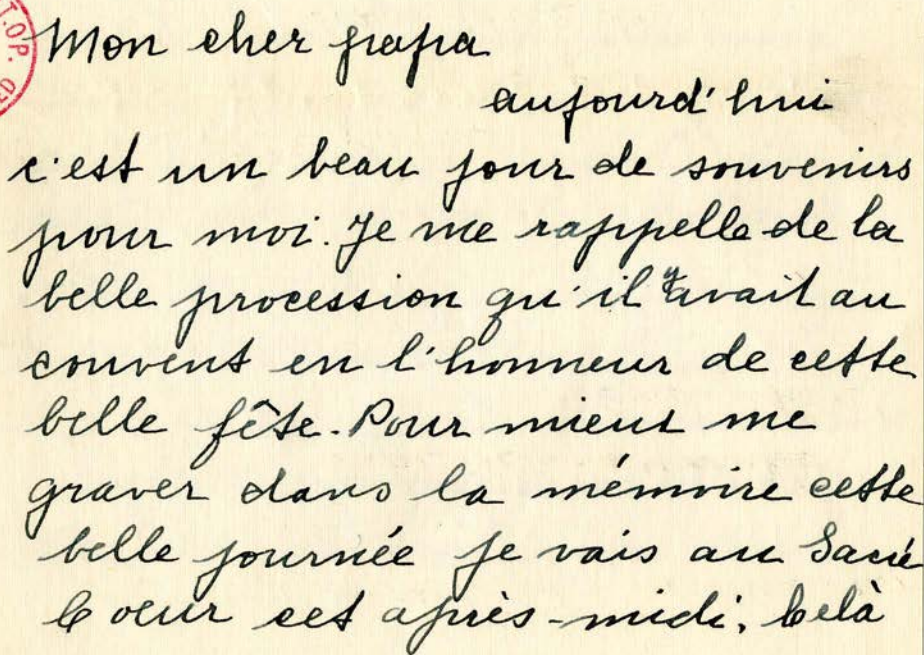 T.O.P.
Mon cher papa
aujourd'hui
c'est un beau jour de souvenirs
pour moi. Je me rappelle de la
belle procession qu'il y avait au
couvent en l'honneur de cette
belle fête. Pour mieux me
graver dans la mémoire cette
belle journée je vais au Sacré
Coeur cet après-midi. Celà